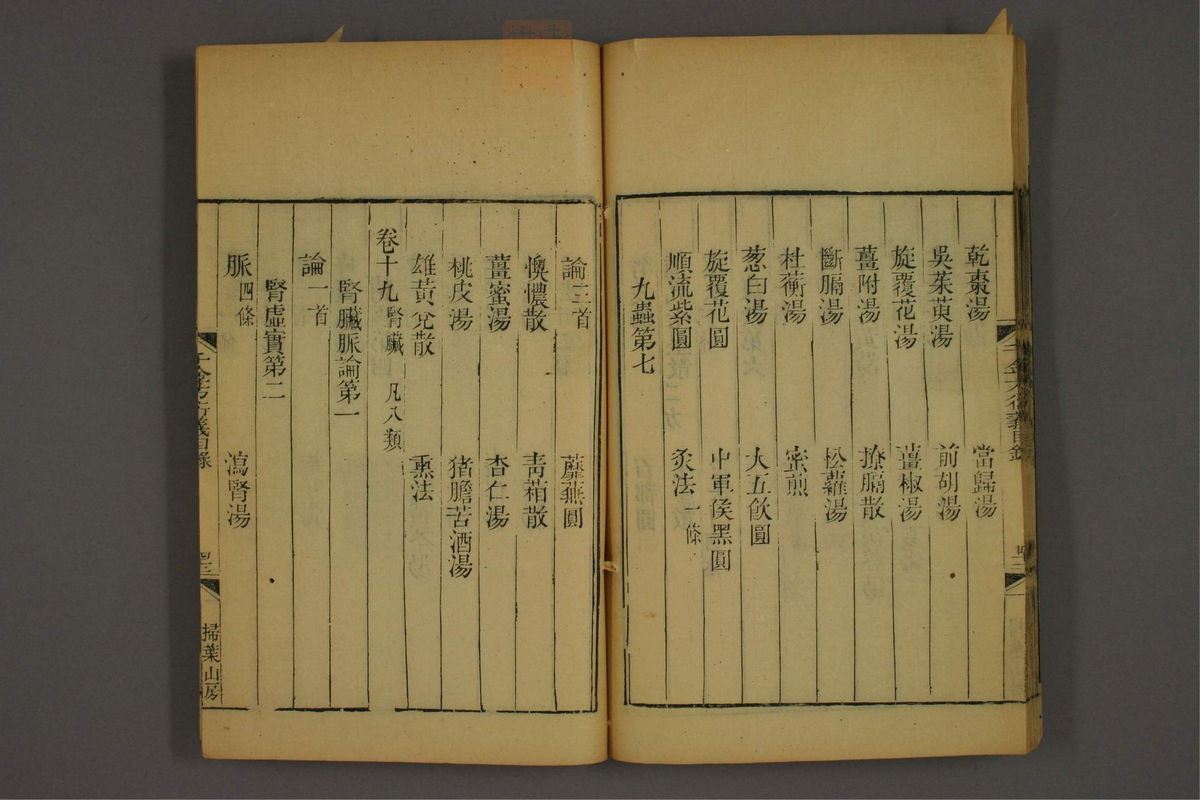 乾棗湯 當歸湯
吳茱萸湯 前胡湯
旋覆花湯 薑椒湯
薑附湯 撩膈散
斷膈湯 松蘿湯
杜蘅湯 蜜煎
葱白湯 大五飲圓
旋覆花圓 中軍侯黑圓
順流紫圓 灸法一條
九蟲第七
論三首 蘼蕪圓
懊憹散 青葙散
薑蜜湯 杏仁湯
桃皮湯 猪膽苦酒湯
雄黃兌散 熏法
卷十九 腎臟 凡八類
腎臟脈論第一
論一首
腎虛實第二
脈四條 瀉腎湯
千金方衍義目錄
掃葉山房